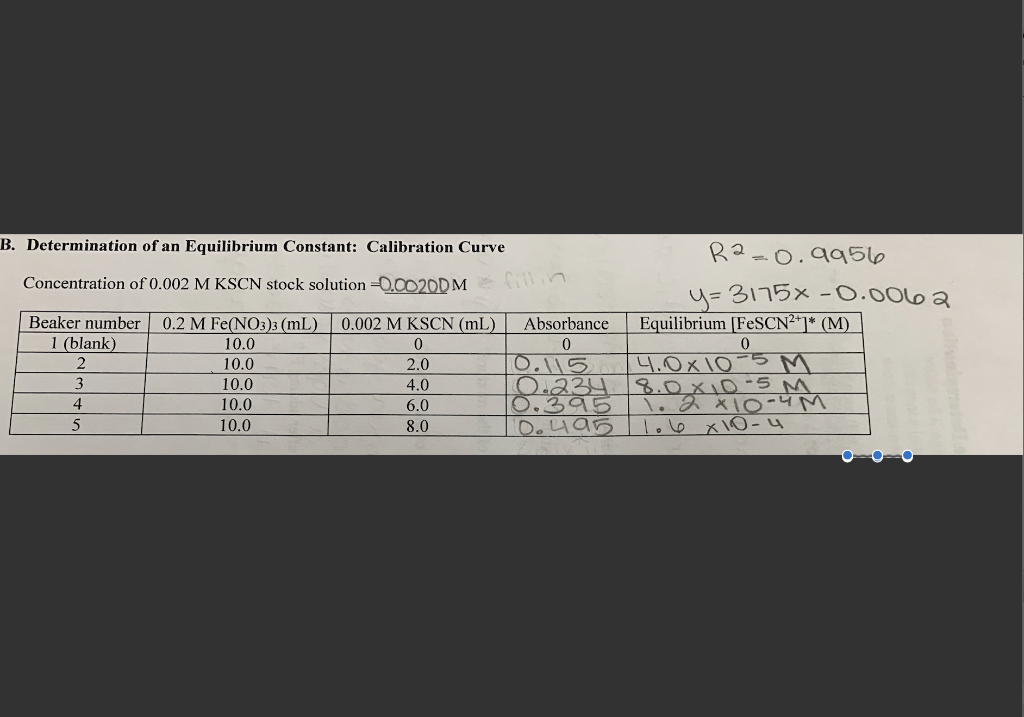 B. Determination of an Equilibrium Constant: Calibration Curve
R2 = 0.9956
Concentration of 0.002 M KSCN stock solution = 0.00200 M fill in
y = 3175x - 0.0062
Beaker number 0.2 M Fe(NO3)3 (mL) 0.002 M KSCN (mL) Absorbance Equilibrium [FeSCN2+]* (M)
1 (blank) 10.0 0 0 0
2 10.0 2.0 0.115 4.0x10-5 M
3 10.0 4.0 0.234 8.0x10-5 M
4 10.0 6.0 0.395 1.2 x10-4 M
5 10.0 8.0 0.495 1.6 x10-4